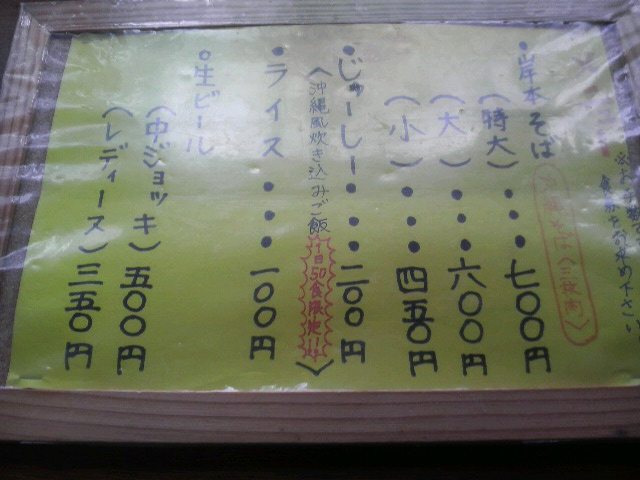 食券をお求め下さい。
沖縄そば〈三枚肉〉
・岸本そば
(特大)・・・七〇〇円
(大)・・・六〇〇円
(小)・・・四五〇円
・じゅーしー・・・二〇〇円
〈沖縄風炊き込みご飯 1日50食限定!!〉
・ライス・・・一〇〇円
○生ビール
(中ジョッキ)五〇〇円
(レディース)三五〇円